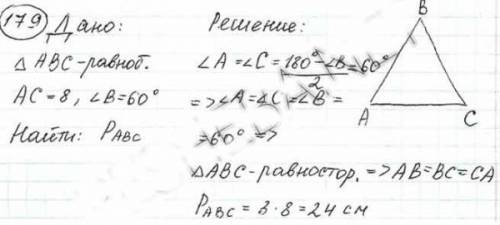 179 Дано:
△ ABC-равноб.
AC=8, ∠B=60°
Найти: P_ABC
Решение:
∠A=∠C=(180°-∠B)/2=60°
=>∠A=∠C=∠B=
=60° =>
△ABC-равностор. =>AB=BC=CA
P_ABC = 3·8=24 см
B
A
C